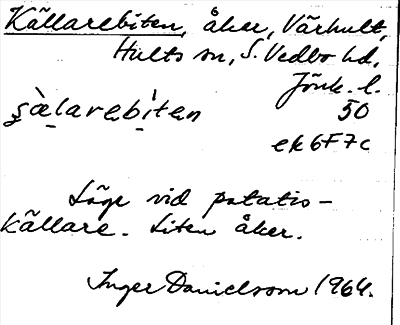 Källarebiten, åker, Vårhult,
Hults sn, S. Vedbo hd,
Jönk. l.
şæ̀larebìten 50
ek 6F7c
Läge vid potatis-
källare. Liten åker.
Inger Danielsson 1964.